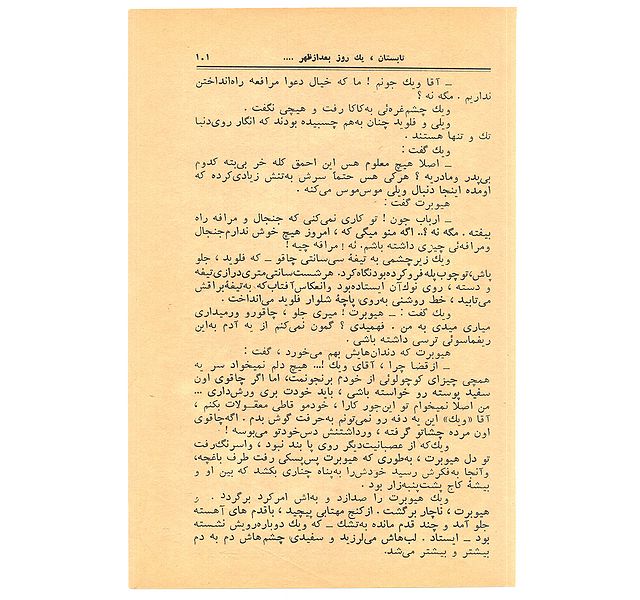 تابستان ، یك روز بعدازظهر .... ۱۰۱
ــ آقا ویك جونم ! ما که خیال دعوا مرافعه راه‌انداختن
نداریم . مگه نه ؟
ویك چشم‌غره‌ئی به‌کاکا رفت و هیچی نگفت .
ویلی و فلوید چنان به‌هم چسبیده بودند که انگار روی‌دنیا
تك و تنها هستند .
ویك گفت :
ــ اصلا هیچ معلوم هس این احمق کله خر بی‌بته کدوم
بی‌پدر ومادریه ؟ هرکی هس حتماً سرش به‌تنش زیادی‌کرده که
اومده اینجا دنبال ویلی موس‌موس می‌کنه .
هیوبرت گفت :
ــ ارباب جون ! تو کاری نمی‌کنی که جنجال و مرافه راه
بیفته . مگه نه ؟.. اگه منو میگی که ، امروز هیچ خوش ندارم‌جنجال
ومرافه‌ئی چیزی داشته باشم. نه ! مرافه چیه !
ویك زیرچشمی به تیغهٔ سی‌سانتی چاقو ــ که فلوید ، جلو
پاش،توچوب‌پله فروکرده‌بودنگاه‌کرد. هرشست‌سانتی‌متری‌درازی‌تیغه
و دسته ، روی نوك‌آن ایستاده‌بود وانعکاس‌آفتاب‌که به‌تیغهٔ‌براقش
می‌تابید ، خط روشنی به‌روی پاچهٔ شلوار فلوید می‌انداخت .
ویك گفت : ــ هیوبرت ! میری جلو ، چاقورو ورمیداری
میاری میدی به من . فهمیدی ؟ گمون نمی‌کنم از یه آدم به‌این
ریغماسوئی ترسی داشته باشی .
هیوبرت که دندان‌هایش بهم می‌خورد ، گفت :
ــ ازقضا چرا ، آقای ویك !... هیچ دلم نمیخواد سر یه
همچی چیزای کوچولوئی از خودم برنجونمت، اما اگر چاقوی اون
سفید پوسته رو خواسته باشی ، باید خودت بری ورش‌داری ...
من اصلا نمیخوام تو این‌جور کارا ، خودمو قاطی معقـولات بکنم ،
آقا «ویك» این یه دفه رو نمی‌تونم به‌حرفت گوش بدم . اگه‌چاقوی
اون مرده چشاتو گرفته ، ورداشتنش دس‌خودتو می‌بوسه !
ویك‌که از عصبانیت‌دیگر روی پا بند نبود ، واسرنگ‌رفت
تو دل هیوبرت ، به‌طوری که هیوبرت پس‌پسکی رفت طرف باغچه،
وآنجا به‌فکرش رسید خودش‌را به‌پناه چناری بکشد که بین او و
بیشهٔ کاج پشت‌پنبه‌زار بود .
ویك هیوبرت را صدازد و به‌اش امرکرد برگردد . و
هیوبرت ، ناچار برگشت . ازکنج مهتابی پیچید ، باقدم های آهسته
جلو آمد و چند قدم مانده به‌تشك ــ که ویك دوباره‌رویش نشسته
بود ــ ایستاد . لب‌هاش می‌لرزید و سفیدی چشم‌هاش دم به دم
بیشتر و بیشتر می‌شد.